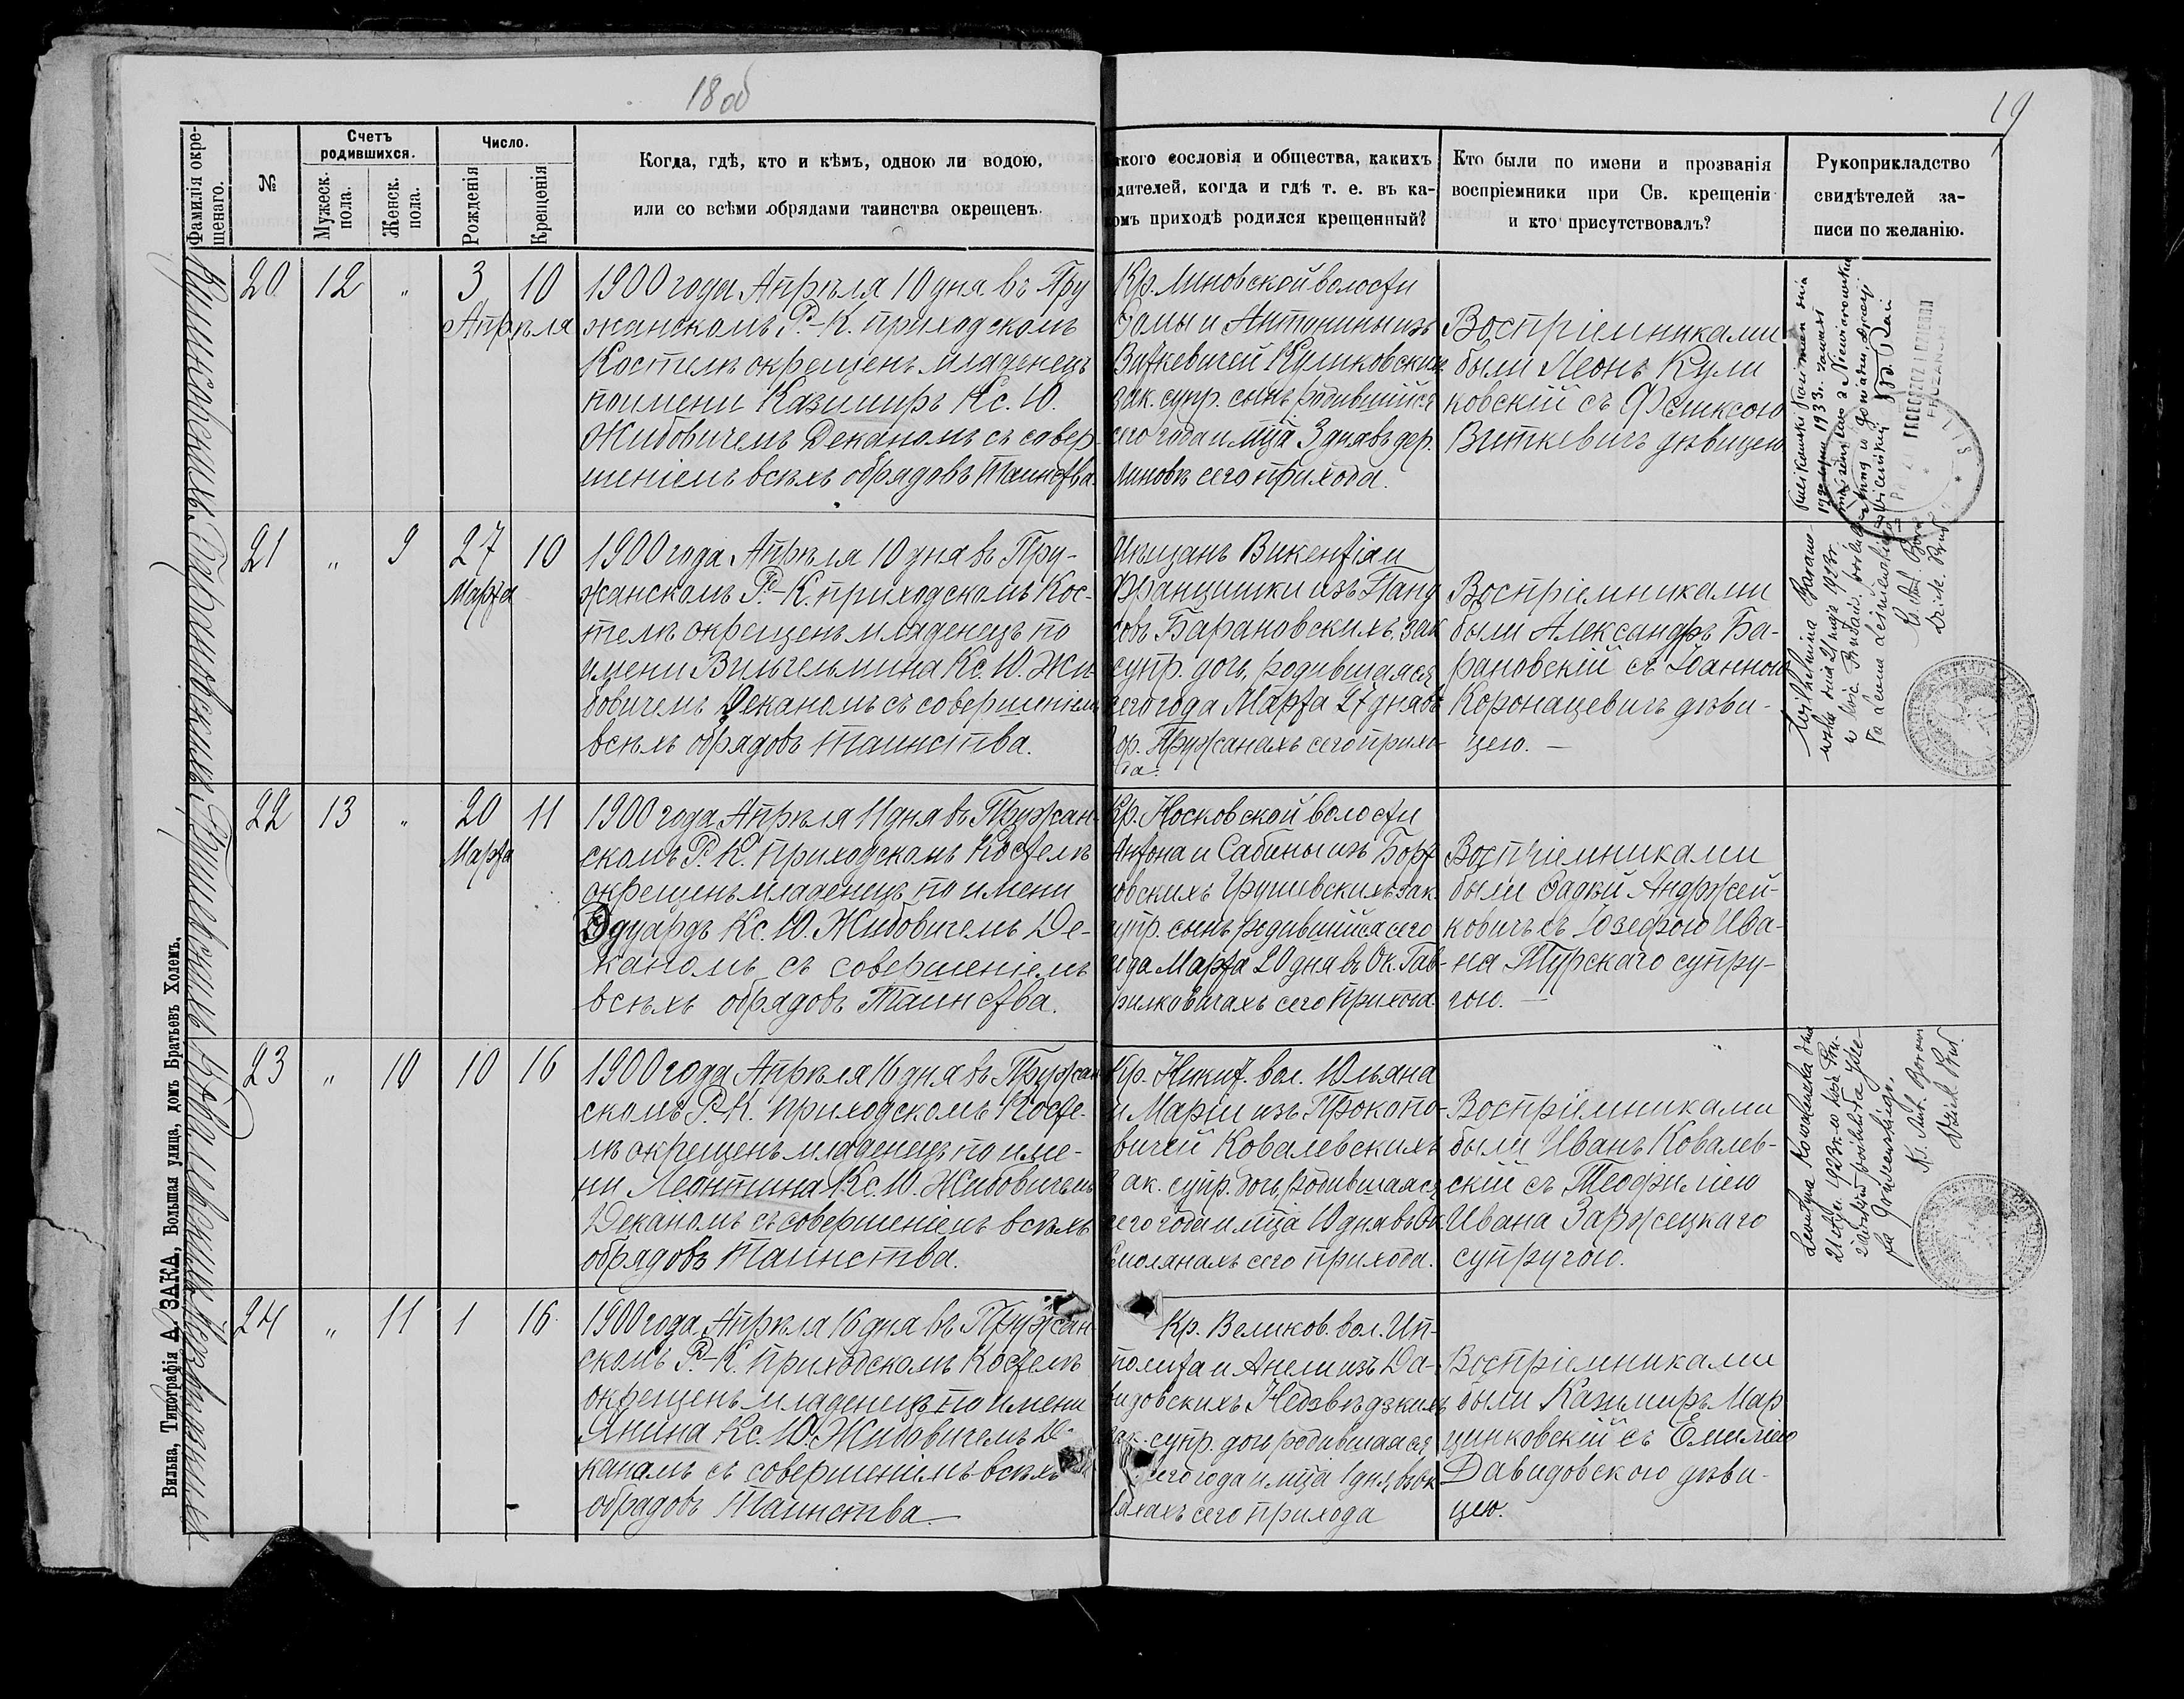 18 об
19
Фамилія окре-
щенаго.
№
Счетъ
родившихся.
Мужеск.
пола.
Женск.
пола.
Число.
Рожденія
Крещенія
Когда, гдѣ, кто и кѣмъ, одною ли водою,
или со всѣми обрядами таинства окрещенъ.
какого сословія и общества, какихъ
родителей, когда и гдѣ т. е. въ ка-
комъ приходѣ родился крещенный?
Кто были по имени и прозванія
воспріемники при Св. крещеніи
и кто присутствовалъ?
Рукоприкладство
свидѣтелей за-
писи по желанію.
Куликовскихъ
20
12
„
3
Апрѣля
10
1900 года Апрѣля 10 дня въ Пру
жанскомъ Р.-К. приходскомъ
Костелѣ окрещенъ младенецъ
по имени Казимиръ Кс. Ю.
Жибовичемъ Деканомъ съ совер-
шеніемъ всѣхъ обрядовъ Таинства.
Кр. Линовской волости
Ѳомы и Антонины изъ
Виткевичей Куликовскихъ
зак. супр. сынъ, родившійся
сего года и мца 3 дня въ дер.
Линовѣ сего прихода.
Воспріемниками
были Леонъ Кули
ковскій съ Феликсою
Виткевичъ дѣвицею
Kulikowski Kazimierz dnia
1933 r. zawarł
Барановскихъ
21
„
9
27
Марта
10
1900 года Апрѣля 10 дня въ Пру-
жанскомъ Р.-К. приходскомъ Кос-
телѣ окрещенъ младенецъ по
имени Вильгельмина Кс. Ю. Жи-
бовичемъ Деканомъ съ совершеніемъ
всѣхъ обрядовъ Таинства.
Мѣщанъ Викентія и
Францишки изъ Панд
совъ Барановскихъ зак
супр. дочь, родившаяся
сего года Марта 27 дня въ
гор. Пружанахъ сего прихо-
да.
Воспріемниками
были Александръ Ба-
рановскій съ Іоанною
Коронацевичъ дѣви-
цею. —
Wilhelmina Barano-
1923 r.
Грушевскихъ
22
13
„
20
Марта
11
1900 года Апрѣля 11 дня въ Пружан-
скомъ Р. К. приходскомъ Костелѣ
окрещенъ младенецъ по имени
Эдуардъ Кс. Ю. Жибовичемъ Де-
каномъ съ совершеніемъ
всѣхъ обрядовъ Таинства.
Кр. Носковской волости
Антона и Сабины изъ Борт
новскихъ Грушевскихъ зак.
супр. сынъ родившійся сего
года Марта 20 дня въ Ок. Гав-
рилковичахъ сего прихода.
Воспріемниками
были Фадѣй Андржей-
ковичъ съ Іозефою Ива-
на Турскаго супру-
гою. —
Ковалевскихъ
23
„
10
10
16
1900 года Апрѣля 16 дня въ Пружан
скомъ Р.-К. приходскомъ Косте-
лѣ окрещенъ младенецъ по име-
ни Леонтина Кс. Ю. Жибовичемъ
Деканомъ съ совершеніемъ всѣхъ
обрядовъ Таинства.
Кр. Никит. вол. Юльяна
и Маріи изъ Прокопо-
вичей Ковалевскихъ
зак. супр. дочь, родившаяся
сего года и мца 10 дня въ Ок
Смолянахъ сего прихода.
Воспріемниками
были Иванъ Ковалев-
скій съ Теофилію
Ивана Заржецкаго
супругою.
Leontyna Kowalewska dnia
1923 r.
Ks. Ant.
Dziek. Pruż.
24
„
11
1
16
1900 года Апрѣля 16 дня въ Пружан-
скомъ Р.-К. приходскомъ Костелѣ
окрещенъ младенецъ по имени
Янина Кс. Ю. Жибовичемъ Де-
каномъ съ совершеніемъ всѣхъ
обрядовъ Таинства.
Кр. Великов. вол. Ип-
полита и Анели изъ Да-
видовскихъ Недзвѣдзкихъ
зак. супр. дочь родившаяся
сего года и мца 1 дня, въ ок
сего прихода
Воспріемниками
были Казимиръ Мар
цинковскій съ Емилію
Давидовскою дѣви-
цею.
Вильна, Типографія А. ЗАКА, Большая улица, домъ Братьевъ Холемъ.